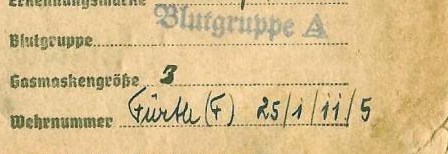 Erkennungsmarke
Blutgruppe A
Blutgruppe
Gasmaskengröße 3
Wehrnummer Fürth (F) 25/1/11/5